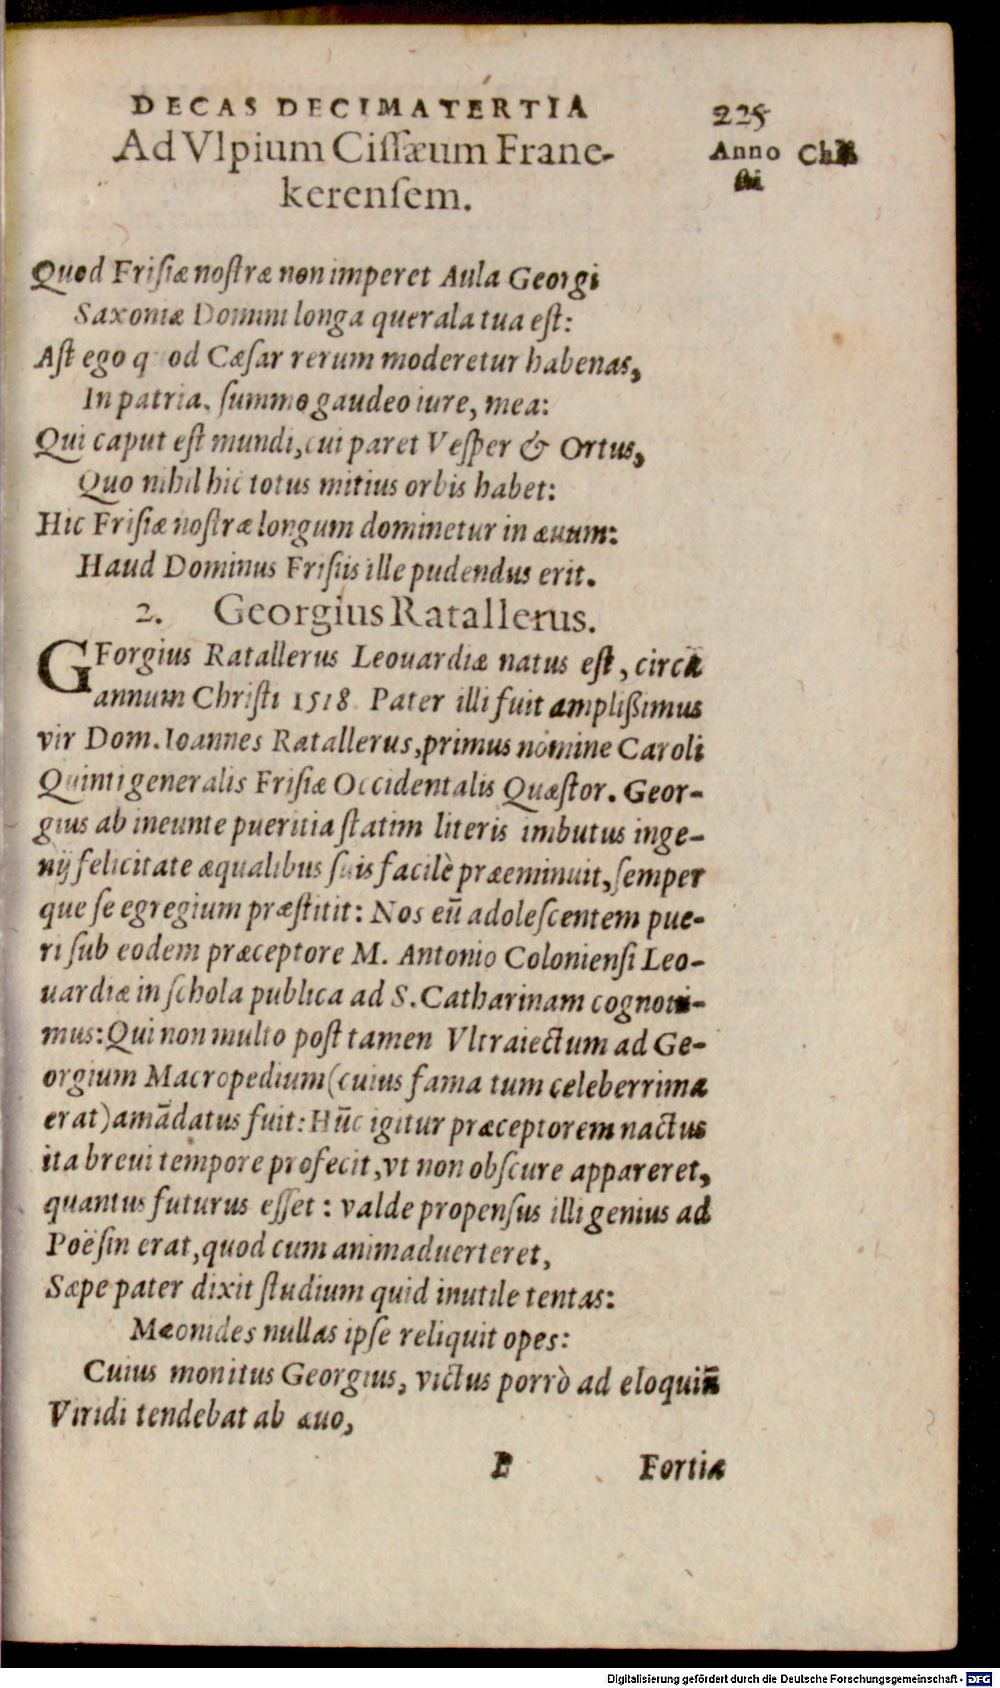 DECAS DECIMATERTIA 225
Ad Vlpium Cissæum Frane-
Anno Chri
sti
kerensem.
Quod Frisiæ nostræ non imperet Aula Georgi
Saxoniæ Domini longa querala tua est:
Ast ego quod Cæsar rerum moderetur habenas,
In patria, summo gaudeo iure, mea:
Qui caput est mundi, cui paret Vesper & Ortus,
Quo nihil hic totus mitius orbis habet:
Hic Frisiæ nostræ longum dominetur in æuum:
Haud Dominus Frisiis ille pudendus erit.
2. Georgius Ratallerus.
GEorgius Ratallerus Leouardiæ natus est, circa
annum Christi 1518 Pater illi fuit amplißimus
vir Dom. Ioannes Ratallerus, primus nomine Caroli
Quinti generalis Frisiæ Occidentalis Quæstor. Geor-
gius ab ineunte pueritia statim literis imbutus inge-
nij felicitate æqualibus suis facilè præeminuit, semper
que se egregium præstitit: Nos eū adolescentem pue-
ri sub eodem præceptore M. Antonio Coloniensi Leo-
uardiæ in schola publica ad S. Catharinam cognoui-
mus: Qui non multo post tamen Vltraiectum ad Ge-
orgium Macropedium (cuius fama tum celeberrima
erat) amādatus fuit: Hūc igitur præceptorem nactus
ita breui tempore profecit, vt non obscure appareret,
quantus futurus esset: valde propensus illi genius ad
Poësin erat, quod cum animaduerteret,
Sæpe pater dixit studium quid inutile tentas:
Mæonides nullas ipse reliquit opes:
Cuius monitus Georgius, victus porrò ad eloquiū
Viridi tendebat ab æuo,
P Fortia
Digitalisierung gefördert durch die Deutsche Forschungsgemeinschaft - DFG